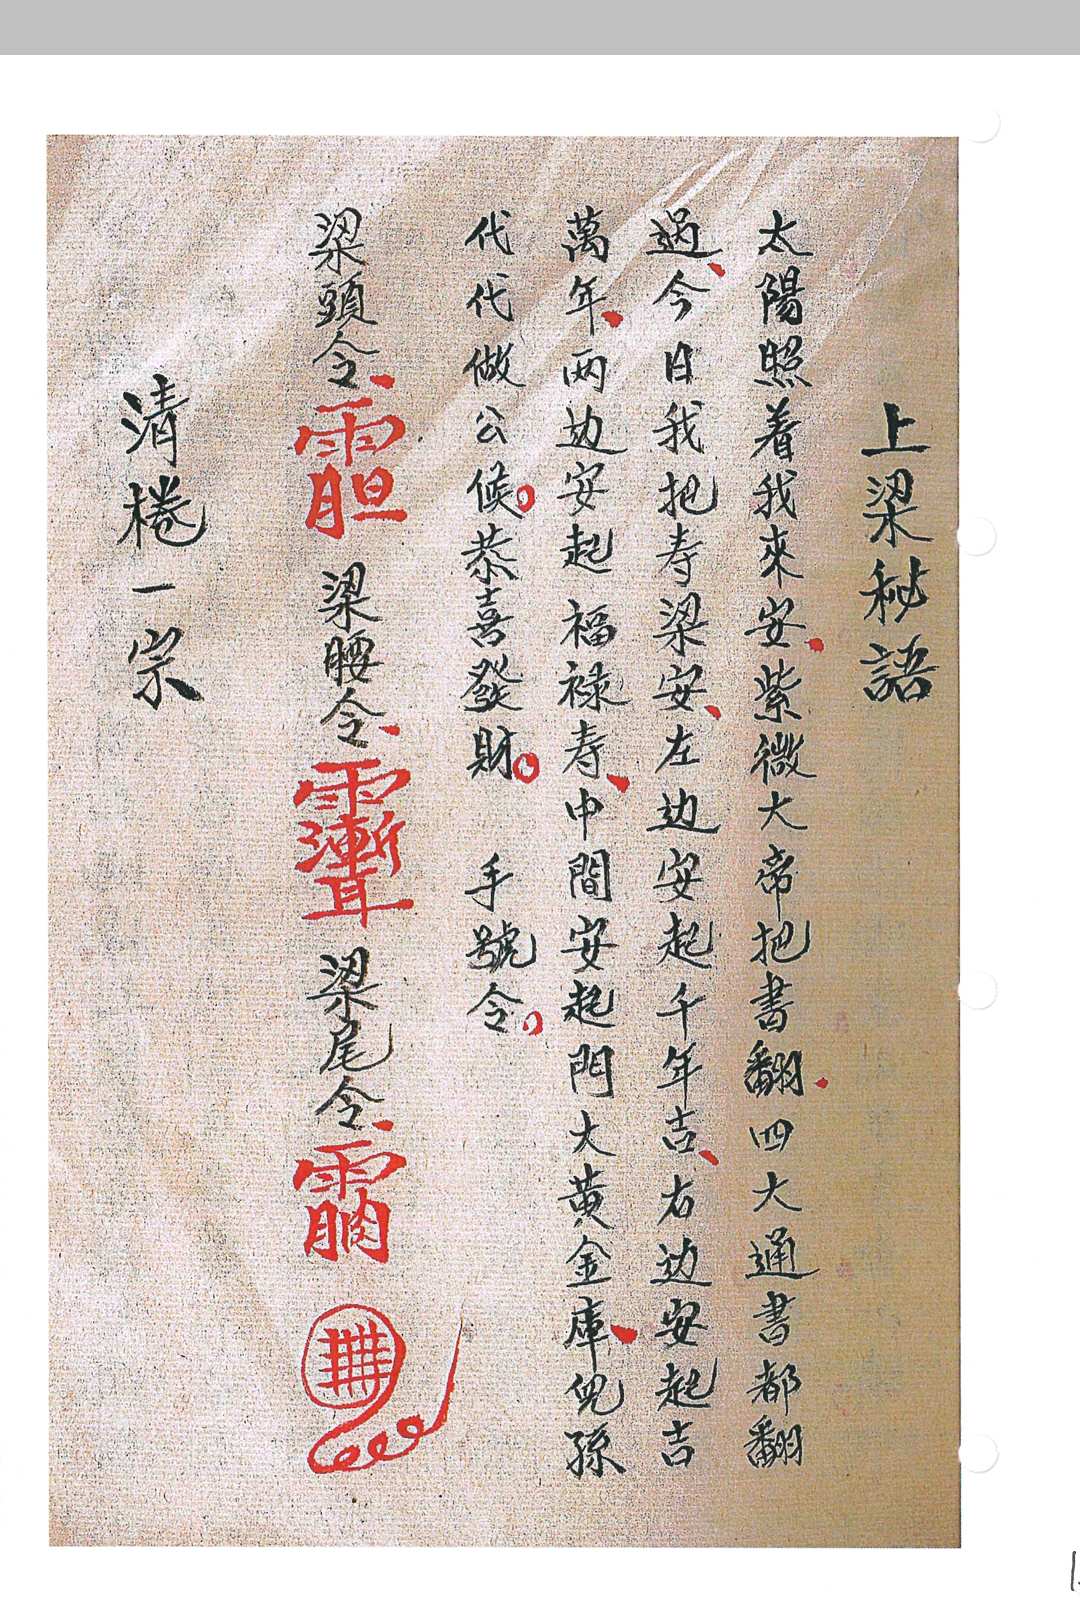 上梁秘語
太陽照着我來安、紫微大帝把書翻、四大通書都翻
過、今日我把寿梁安、左边安起千年吉、右边安起吉
萬年、两边安起福禄寿、中間安起門大黄金庫、児孫
代代做公候。恭喜發財。 手號令。
梁頭令、 梁腰令、 梁尾令、
清樁一宗